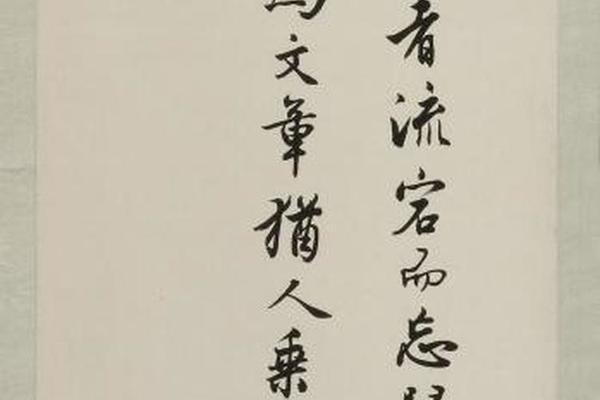 者流宕而忘
文章猶人乘